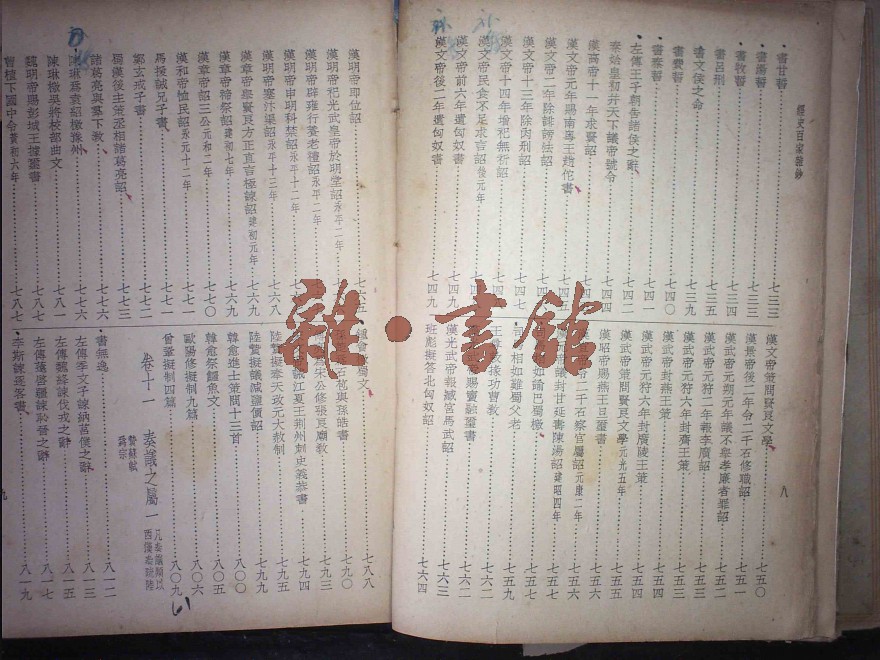 經史百家雜鈔
書甘誓……七三三
書湯誓……七三三
書牧誓……七三四
書呂刑……七三五
書文侯之命……七三九
書費誓……七四〇
書秦誓……七四一
左傳王子朝告諸侯之辭……七四二
秦始皇初并天下議帝號令……七四四
漢高帝十一年求賢詔
漢文帝元年賜南粵王趙佗書
漢文帝二年除誹謗法詔
漢文帝十三年除肉刑詔……七四七
漢文帝十四年增祀無祈詔
漢文帝民食不足求言詔後元年
漢文帝前六年遺匈奴書……七四九
漢文帝後二年遺匈奴書……七四九
八
漢文帝策問賢良文學……七五〇
漢景帝後二年令二千石修職詔……七五一
漢武帝元朔元年議不舉孝廉者罪詔……七五二
漢武帝元狩二年報李廣詔……七五二
漢武帝元狩六年封齊王策……七五三
漢武帝封燕王策……七五三
漢武帝元狩六年封廣陵王策……七五四
漢武帝策問賢良文學元光五年……七五五
漢昭帝賜燕王旦璽書……七五五
二千石察官屬詔元康二年……七五六
議封甘延壽陳湯詔建昭四年
如諭巴蜀檄……七五七
相如難蜀父老
王尊敎掾功曹敎……七六二
賜竇融璽書
漢光武帝報臧宮馬武詔……七六三
班彪擬答北匈奴詔……七六四
漢明帝即位詔
漢明帝祀光武皇帝於明堂詔永平二年
漢明帝辟雍行養老禮詔永平二年
漢明帝申明科禁詔永平十二年
漢明帝塞汴渠詔永平十三年……七六八
漢章帝舉賢良方正直言極諫詔建初元年
漢章帝禘祭詔建初七年……七六九
漢章帝詔三公元和二年……七七〇
漢和帝恤民詔永元十二年……七七一
馬援誡兄子書……七七一
鄭玄戒子書……七七二
蜀漢後主策丞相諸葛亮詔……七七三
諸葛亮與羣下敎……七七六
陳琳爲袁紹檄豫州……七七六
陳琳檄吳將校部曲文……七八一
魏明帝賜彭城王據璽書……七八七
曹植下國中令黃初六年……七八七
蜀文……七八八
石苞與孫皓書……七九〇
宋公修張良廟敎……七九三
江夏王荆州刺史義恭書
陸贄擬奉天改元大赦制……七九五
陸贄擬議減鹽價詔……七九九
韓愈進士策問十三首……八〇〇
韓愈祭鱷魚文……八〇五
歐陽修擬制九篇……八〇六
曾鞏擬制四篇……八〇九
卷十一　奏議之屬一
書無逸……八一二
左傳季文子諫納莒僕之辭……八一三
左傳魏絳諫伐戎之辭……八一五
左傳蔿啓疆諫恥晉之辭……八一七
李斯諫逐客書……八一九
九
雜·書館